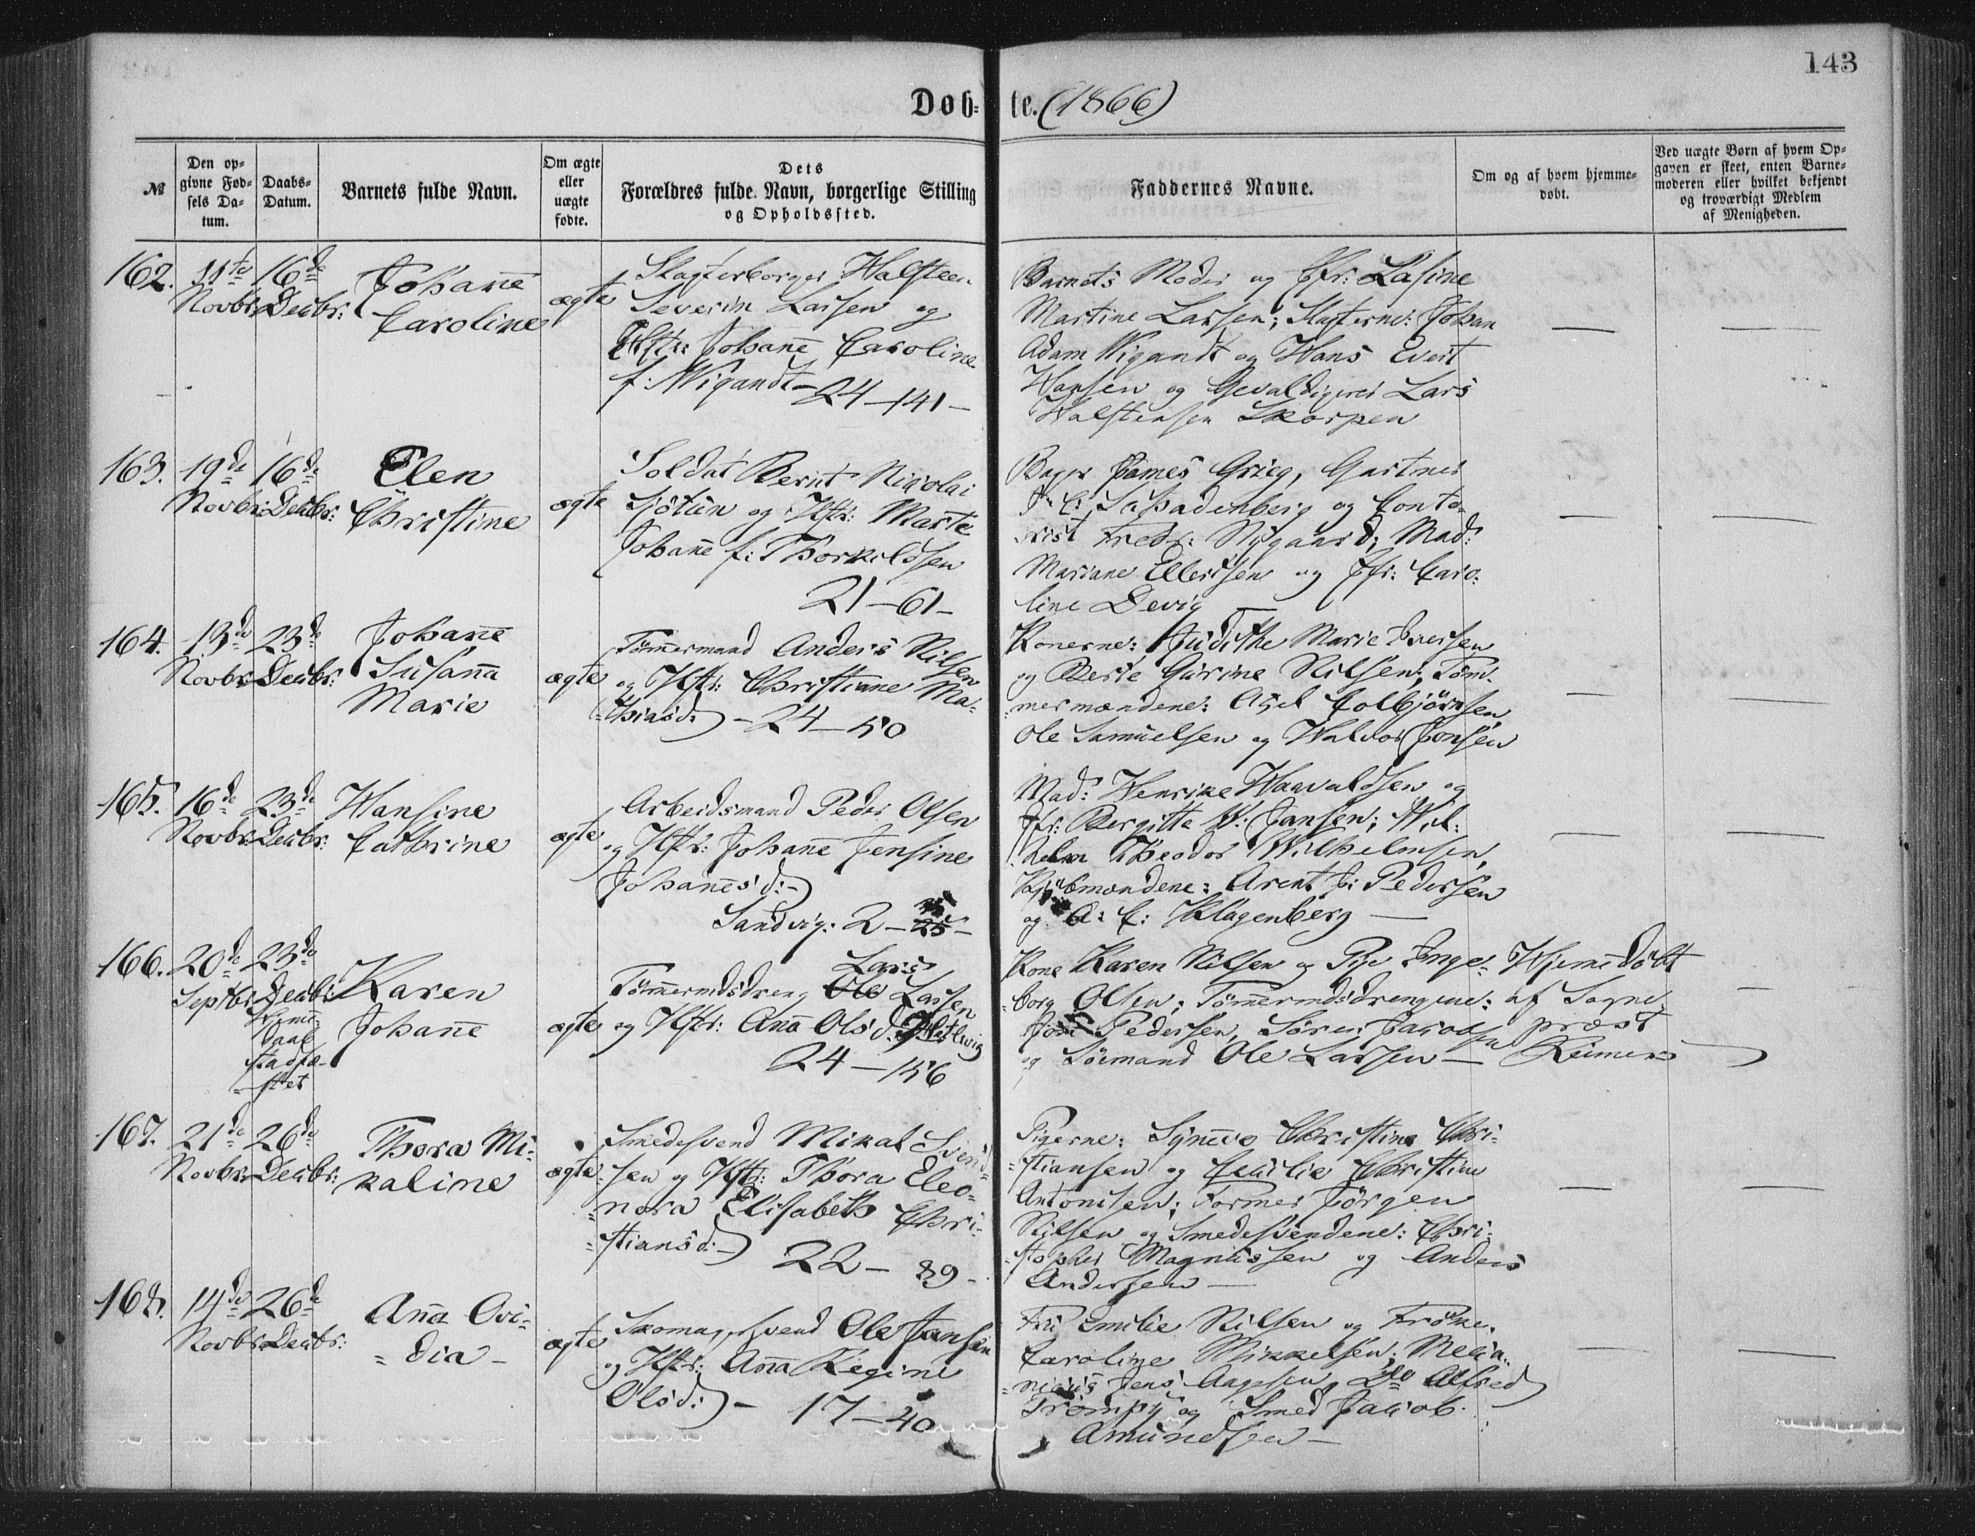 143
Døbte. (1866)
№
Den opgivne Fødsels Datum.
Daabs-Datum.
Barnets fulde Navn.
Om ægte eller uægte fødte.
Dets Forældres fulde Navn, borgerlige Stilling og Opholdssted.
Faddernes Navne.
Om og af hvem hjemmedøbt.
Ved uægte Børn af hvem Opgaven er skeet, enten Barnemoderen eller hvilket bekjendt og troværdigt Medlem af Menigheden.
162. 11te Novbr: 16de Decbr:
Johañe
Caroline
ægte
Slagterborger Halsteen
Severin Larsen og
Hstr: Johañe Caroline
f: Wigandt - 24 - 141 -
Barnets Moder og Jfr: Lasine
Martine Larsen; Slagterne: Johan
Adam Wigandt og Hans Evert
Hansen og Gevaldigeres Lars
Halstensen Skorpen
163. 19de Novbr: 16de Decbr:
Elen
Christine
ægte
Soldat Bernt Nikolai
Sjötun og Hstr: Marte
Johañe f: Thorkildsen
21 - 61 -
Bager James Grieg, Gartner
og Conto-
rist Fredr: Nygaard; Mad:
Mariane Ellertsen og Jfr: Caro-
line Devig
164. 13de Novbr: 23de Decbr:
Johañe
Susaña
Marie
ægte
Tömermand Anders Nilsen
og Hstr: Christiane Ma-
thiasd: - 24 - 50
Konerne: Judithe Marie Iversen
og Berte Gurine Nilsen; Töm-
mermændene: Axel Colbjörnsen,
Ole Samuelsen og Halvor Jonsen
165. 16de Novbr: 23de Decbr:
Hansine
Cathrine
ægte
Arbeidsmand Peder Olsen
og Hstr: Johañe Jensine
Johañesd: -
Sandvig: 2 -
Mad: Henrike Haavaldsen og
Jfr: Bergitte Jansen; Wil-
helm Theodor Wilhelmsen,
Kjøbmændene: Arent J: Pedersen
og A: C: Klagenberg -
166. 20de Septbr: 23de Decbr:
stadfæ-
stet
Karen
Johañe
ægte
Tömermdsdreng Lars Larsen
og Hstr: Aña Olsd:
24 - 156
Kone Karen Nilsen og Pige Inge-
borg Olsen; Tömermdsdrengene:
Pedersen, Sören Jacobsen
og Söemand Ole Larsen -
Hjemedöbt
af Sogne-
præst
Reimers
167. 21de Novbr: 26de Decbr:
Thora Mi-
kaline
ægte
Smedesvend Mikal Svend-
sen og Hstr: Thora Eleo-
nora Elisabeth Chri-
stiansd: -
22 - 89 -
Pigerne: Synneve Christine Chri-
stiansen og Cecilie Christine
Antonisen; Former Jörgen
Nilsen og Smedesvendene: Chri-
stopher Magnussen og Anders
Andersen -
168. 14de Novbr: 26de Decbr:
Aña Ovi-
dia -
ægte
Skomagersvend Ole Jansen
og Hstr: Aña Regine
Olsd: - 17 - 40
Fru Emilie Nilsen og Fröken
Caroline Mikkelsen; Mecha-
nicus Jens Do Alfred
Trömpy og Smed Jacob
Amundsen -